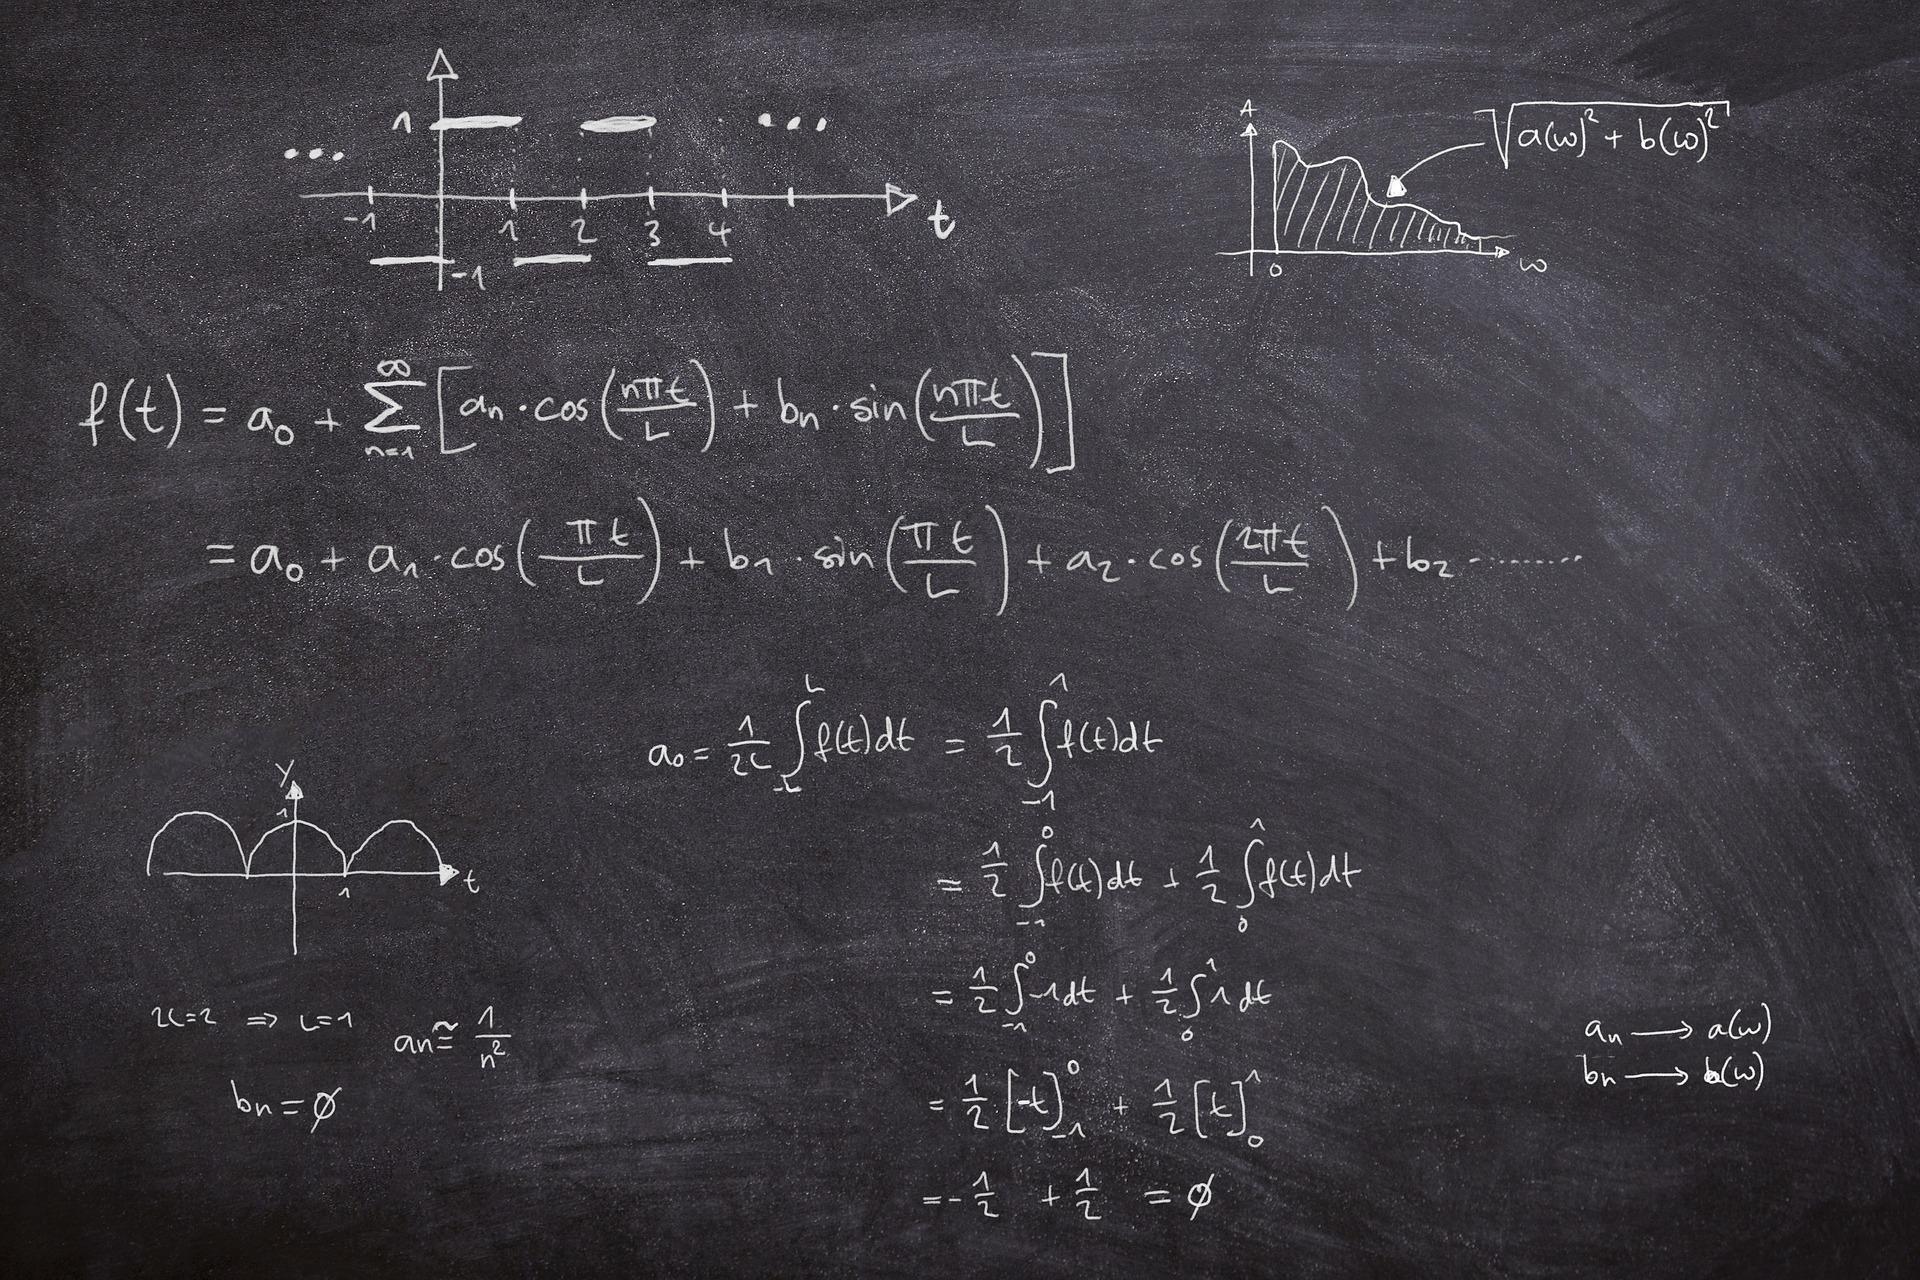 1
... ...
-1 1 2 3 4 t
-1
A
√(a(ω)² + b(ω)²)
0 ω
f(t) = a₀ + ∑ₙ₌₁^∞ [aₙ · cos(nπt/L) + bₙ · sin(nπt/L)]
= a₀ + a₁ · cos(πt/L) + b₁ · sin(πt/L) + a₂ · cos(2πt/L) + b₂ ........
a₀ = 1/2L ∫₋L^L f(t)dt = 1/2 ∫₋₁^1 f(t)dt
= 1/2 ∫₋₁^0 f(t)dt + 1/2 ∫₀^1 f(t)dt
= 1/2 ∫₋₁^0 -1dt + 1/2 ∫₀^1 1dt
= 1/2 [-t]₋₁^0 + 1/2 [t]₀^1
= -1/2 + 1/2 = ∅
y
1
1 t
2L=2 ⇒ L=1
aₙ ≅ 1/n²
bₙ = ∅
aₙ → a(ω)
bₙ → b(ω)